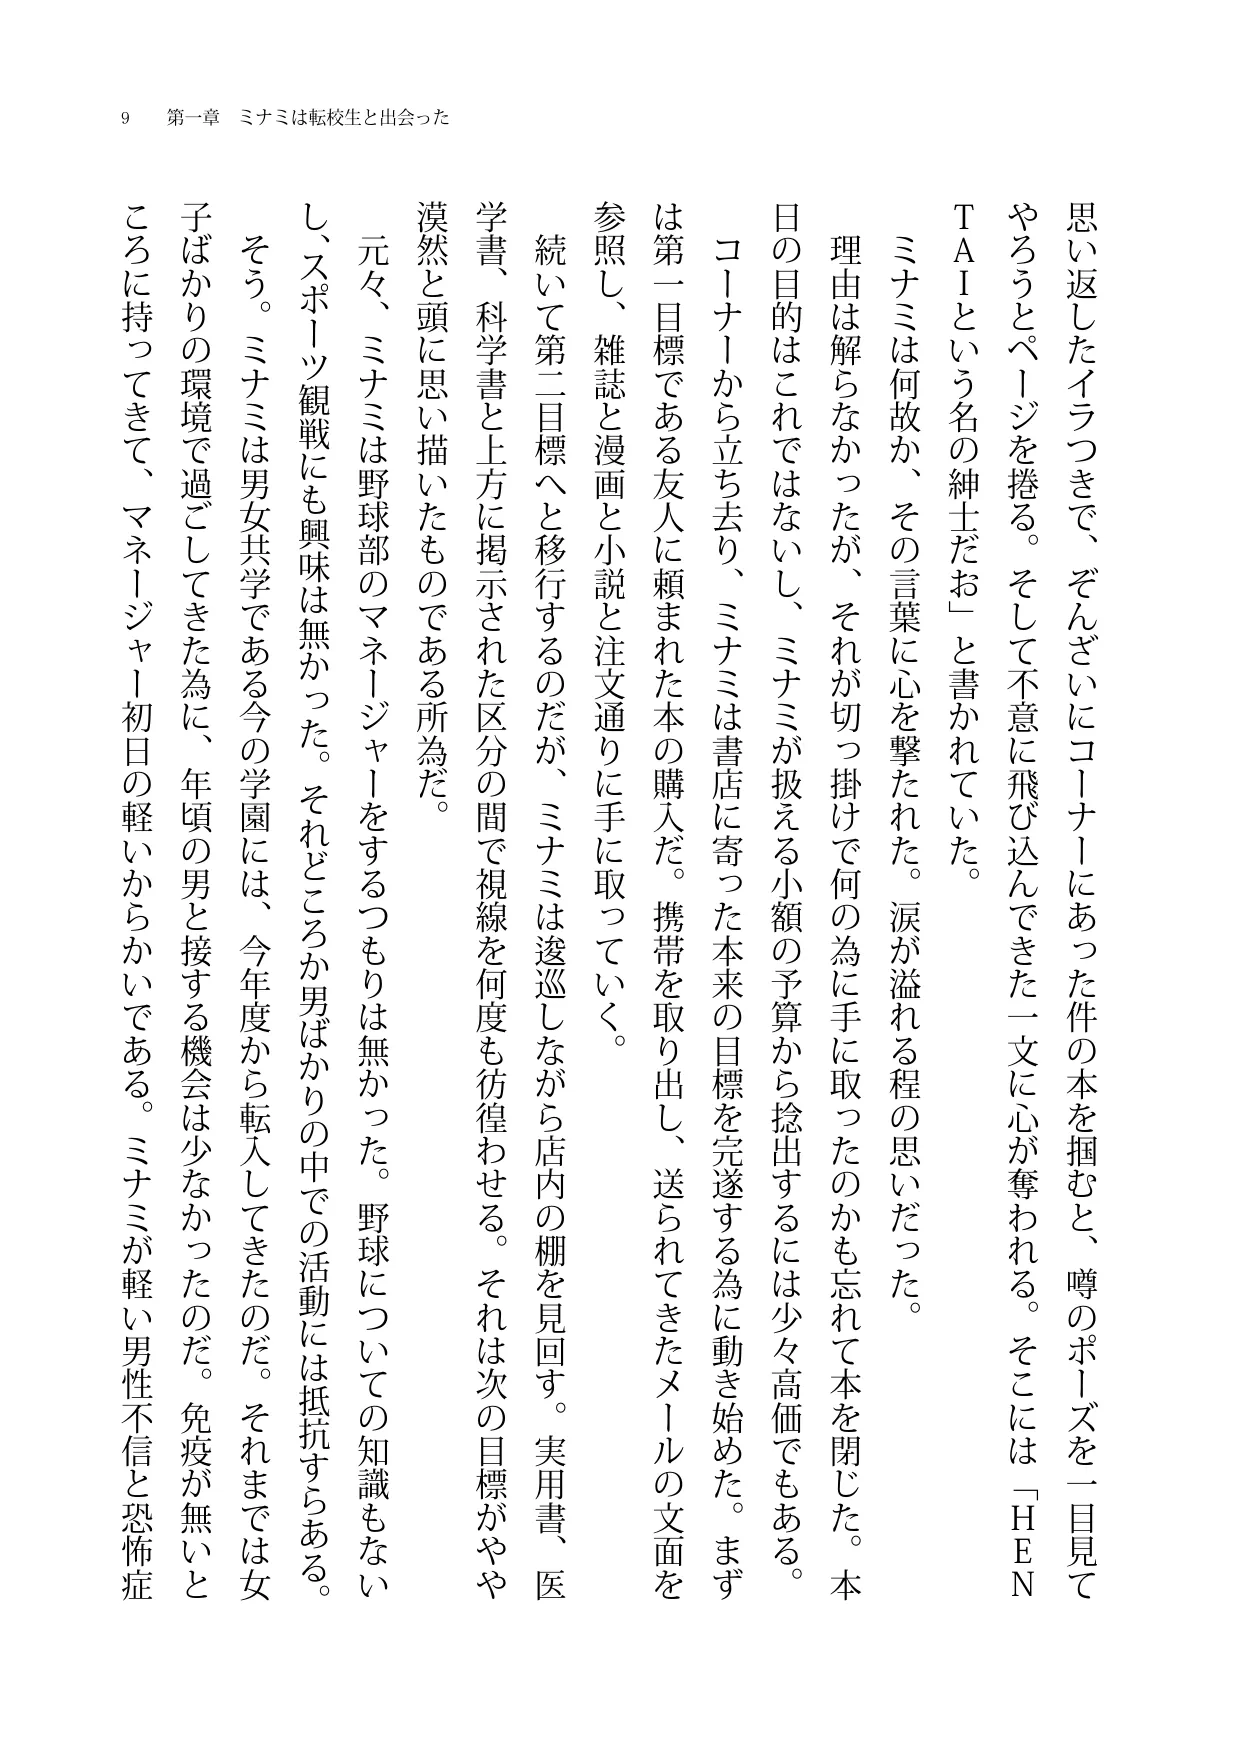 9　第一章　ミナミは転校生と出会った
思い返したイラつきで、ぞんざいにコーナーにあった件の本を掴むと、噂のポーズを一目見て
やろうとページを捲る。そして不意に飛び込んできた一文に心が奪われる。そこには「ＨＥＮ
ＴＡＩという名の紳士だお」と書かれていた。
　ミナミは何故か、その言葉に心を撃たれた。涙が溢れる程の思いだった。
　理由は解らなかったが、それが切っ掛けで何の為に手に取ったのかも忘れて本を閉じた。本
日の目的はこれではないし、ミナミが扱える小額の予算から捻出するには少々高価でもある。
　コーナーから立ち去り、ミナミは書店に寄った本来の目標を完遂する為に動き始めた。まず
は第一目標である友人に頼まれた本の購入だ。携帯を取り出し、送られてきたメールの文面を
参照し、雑誌と漫画と小説と注文通りに手に取っていく。
　続いて第二目標へと移行するのだが、ミナミは逡巡しながら店内の棚を見回す。実用書、医
学書、科学書と上方に掲示された区分の間で視線を何度も彷徨わせる。それは次の目標がやや
漠然と頭に思い描いたものである所為だ。
　元々、ミナミは野球部のマネージャーをするつもりは無かった。野球についての知識もない
し、スポーツ観戦にも興味は無かった。それどころか男ばかりの中での活動には抵抗すらある。
　そう。ミナミは男女共学である今の学園には、今年度から転入してきたのだ。それまでは女
子ばかりの環境で過ごしてきた為に、年頃の男と接する機会は少なかったのだ。免疫が無いと
ころに持ってきて、マネージャー初日の軽いからかいである。ミナミが軽い男性不信と恐怖症